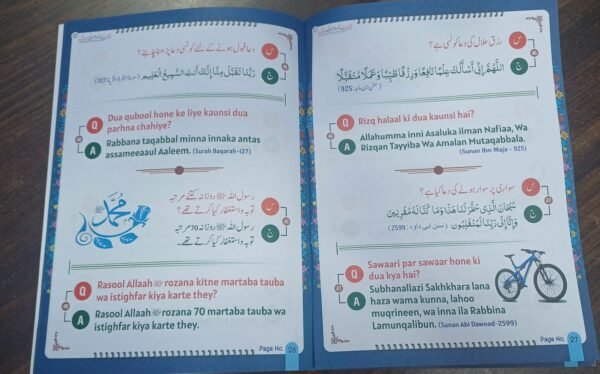 س
دعا قبول ہونے کے لئے کونسی دعا پڑھنا چاہئے؟
ج
رَبَّنَا تَقَبَّلْ مِنَّا إِنَّكَ أَنتَ السَّمِيعُ الْعَلِيمُ
Q
Dua qubool hone ke liye kaunsi dua
parhna chahiye?
A
Rabbana taqabbal minna innaka antas
assameeaaul Aaleem. (Surah Baqarah-127)
س
رسول اللہ ﷺ روزانہ کتنے مرتبہ
توبہ و استغفار کیا کرتے تھے؟
ج
رسول اللہ ﷺ روزانہ 70 مرتبہ
توبہ و استغفار کیا کرتے تھے۔
محمد
Q
Rasool Allaah ﷺ rozana kitne martaba tauba
wa istighfar kiya karte they?
A
Rasool Allaah ﷺ rozana 70 martaba tauba wa
istighfar kiya karte they.
Page No.
س
رزق حلال کی دعا کونسی ہے؟
ج
اللَّهُمَّ إِنِّي أَسْأَلُكَ عِلْمًا نَافِعًا وَرِزْقًا طَيِّبًا وَعَمَلًا مُتَقَبَّلًا
(سنن ابن ماجہ: 925)
Q
Rizq halaal ki dua kaunsi hai?
A
Allahumma inni Asaluka ilman Nafiaa, Wa
Rizqan Tayyiba Wa Amalan Mutaqabbala.
(Sunan Ibn Maja - 925)
س
سواری پر سوار ہونے کی دعا کیا ہے؟
ج
سُبْحَانَ الَّذِي سَخَّرَ لَنَا هَذَا وَمَا كُنَّا لَهُ مُقْرِنِينَ
وَإِنَّا إِلَى رَبِّنَا لَمُنْقَلِبُونَ (سنن ابی داود: 2599)
Q
Sawaari par sawaar hone ki
dua kya hai?
A
Subhanallazi Sakhkhara lana
haza wama kunna, lahoo
muqrineen, wa inna ila Rabbina
Lamunqalibun. (Sunan Abi Dawood-2599)
Page No. 27